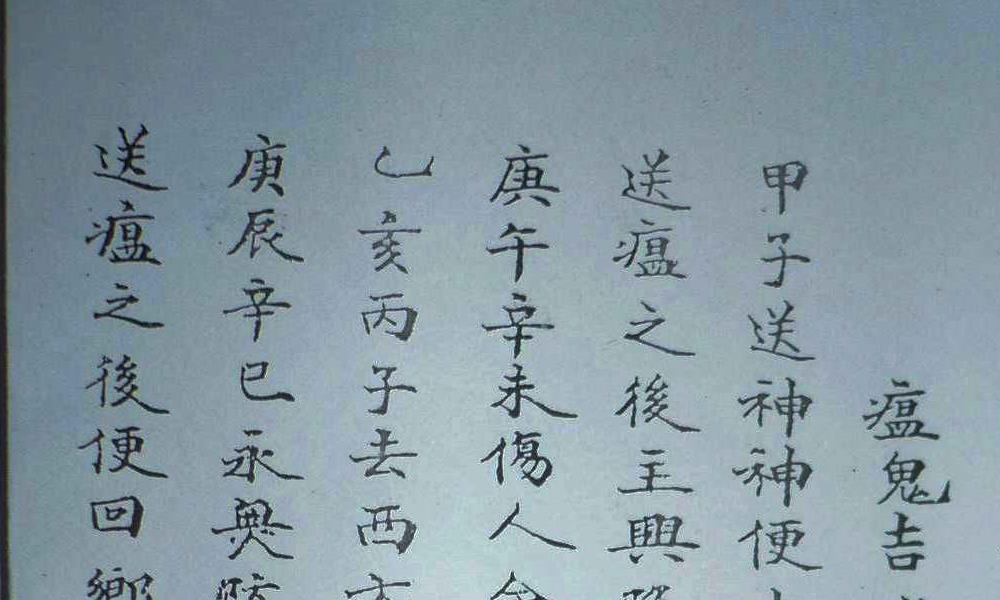 瘟鬼吉
甲子送神神便
送瘟之後主興
庚午辛未傷人
乙亥丙子去西方
庚辰辛巳永無
送瘟之後便回鄉